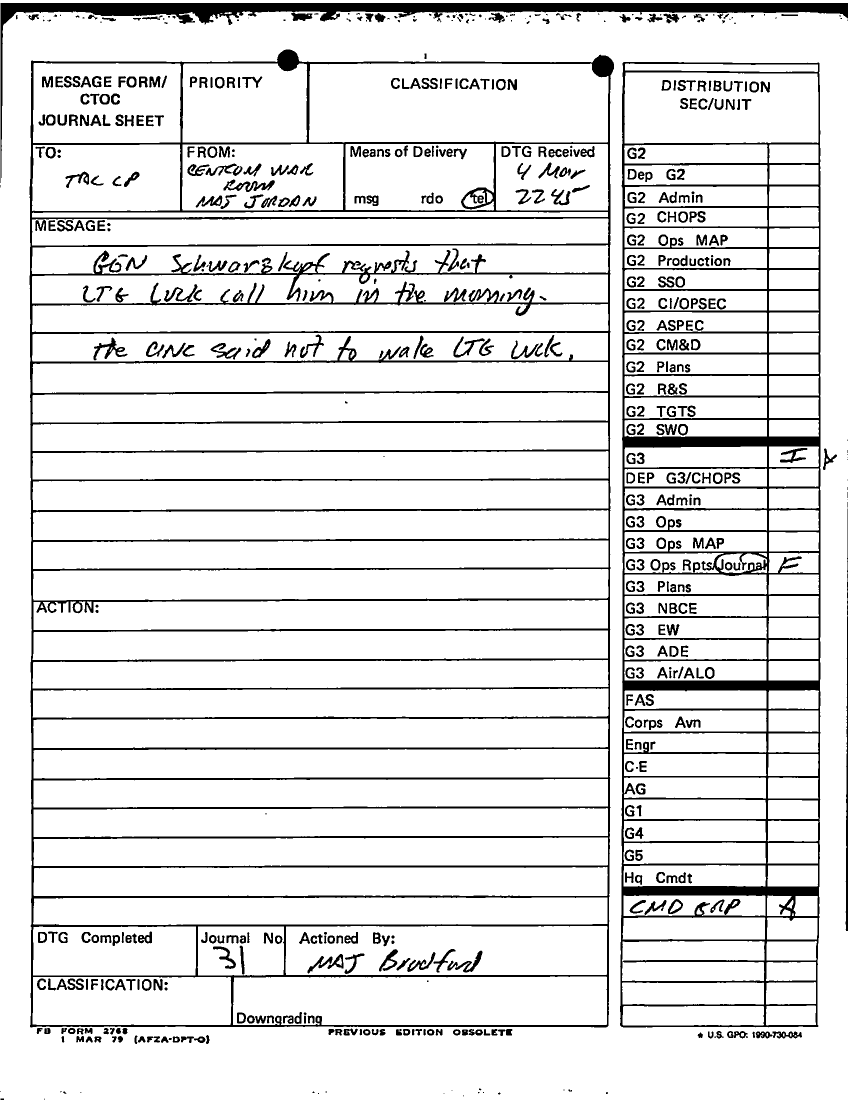 MESSAGE FORM/
CTOC
JOURNAL SHEET
PRIORITY
CLASSIFICATION
TO:
TAC CP
FROM:
CENTCOM WAR
ROOM
MAJ JORDAN
Means of Delivery
msg rdo tel
DTG Received
4 Mar
2245
MESSAGE:
GEN Schwarzkopf requests that
LTG Luck call him in the morning.
The CINC said not to wake LTG Luck.
ACTION:
DTG Completed
Journal No.
31
Actioned By:
MAJ Bradford
CLASSIFICATION:
Downgrading
FB FORM 2768
1 MAR 79 (AFZA-DPT-O)
PREVIOUS EDITION OBSOLETE
DISTRIBUTION
SEC/UNIT
G2
Dep G2
G2 Admin
G2 CHOPS
G2 Ops MAP
G2 Production
G2 SSO
G2 CI/OPSEC
G2 ASPEC
G2 CM&D
G2 Plans
G2 R&S
G2 TGTS
G2 SWO
G3 I
DEP G3/CHOPS
G3 Admin
G3 Ops
G3 Ops MAP
G3 Ops Rpts/Journal F
G3 Plans
G3 NBCE
G3 EW
G3 ADE
G3 Air/ALO
FAS
Corps Avn
Engr
C-E
AG
G1
G4
G5
Hq Cmdt
CMD GRP A
* U.S. GPO: 1990-730-084